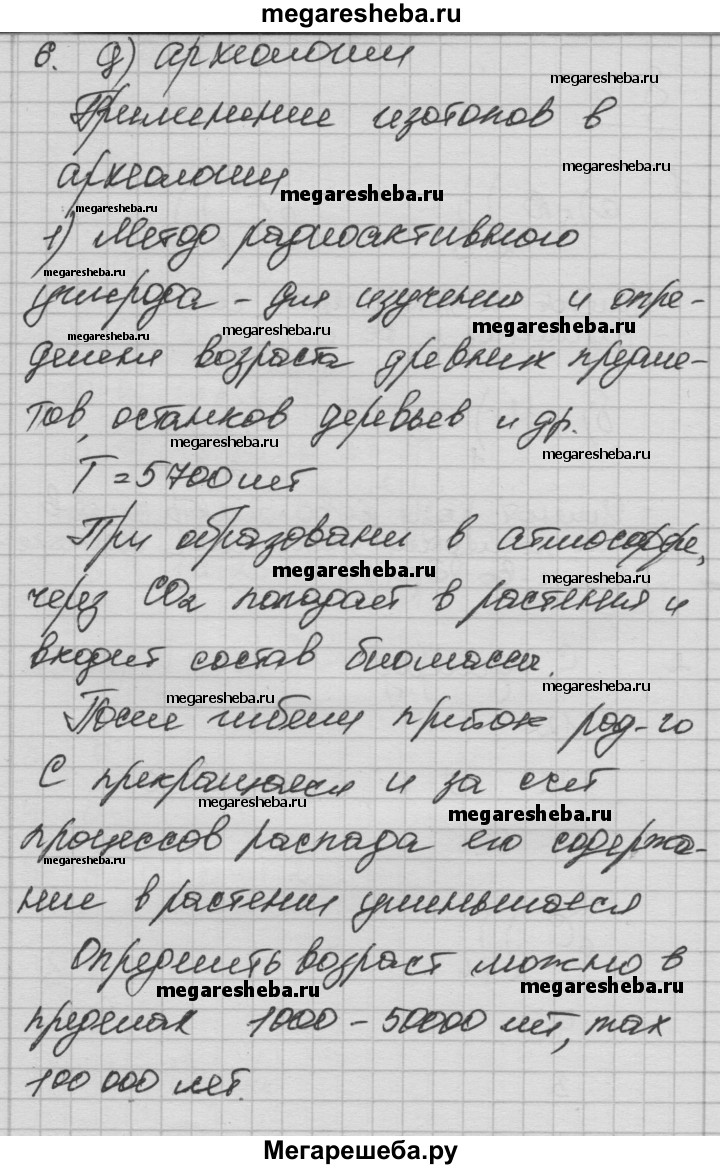 megaresheba.ru
6. д) археологии
megaresheba.ru
Применение изотопов в
megaresheba.ru
археологии
megaresheba.ru
megaresheba.ru
1) Метод радиоактивного
megaresheba.ru
углерода – для изучения и опре-
megaresheba.ru
megaresheba.ru
делени возраста древних предме-
тов, останков деревьев и др.
megaresheba.ru
megaresheba.ru
T = 5700 лет
При образовани в атмосфере,
megaresheba.ru
megaresheba.ru
через CO₂ попадает в растения и
входит состав биомассы.
megaresheba.ru
После гибели приток рад-го
С прекращаеся и за счет
megaresheba.ru
megaresheba.ru
процессов распада его содержа-
megaresheba.ru
ние в растении уменьшаеся
Определить возраст можно в
megaresheba.ru
megaresheba.ru
пределах 1000 – 50000 лет, max
100 000 лет.
Мегарешеба.ру